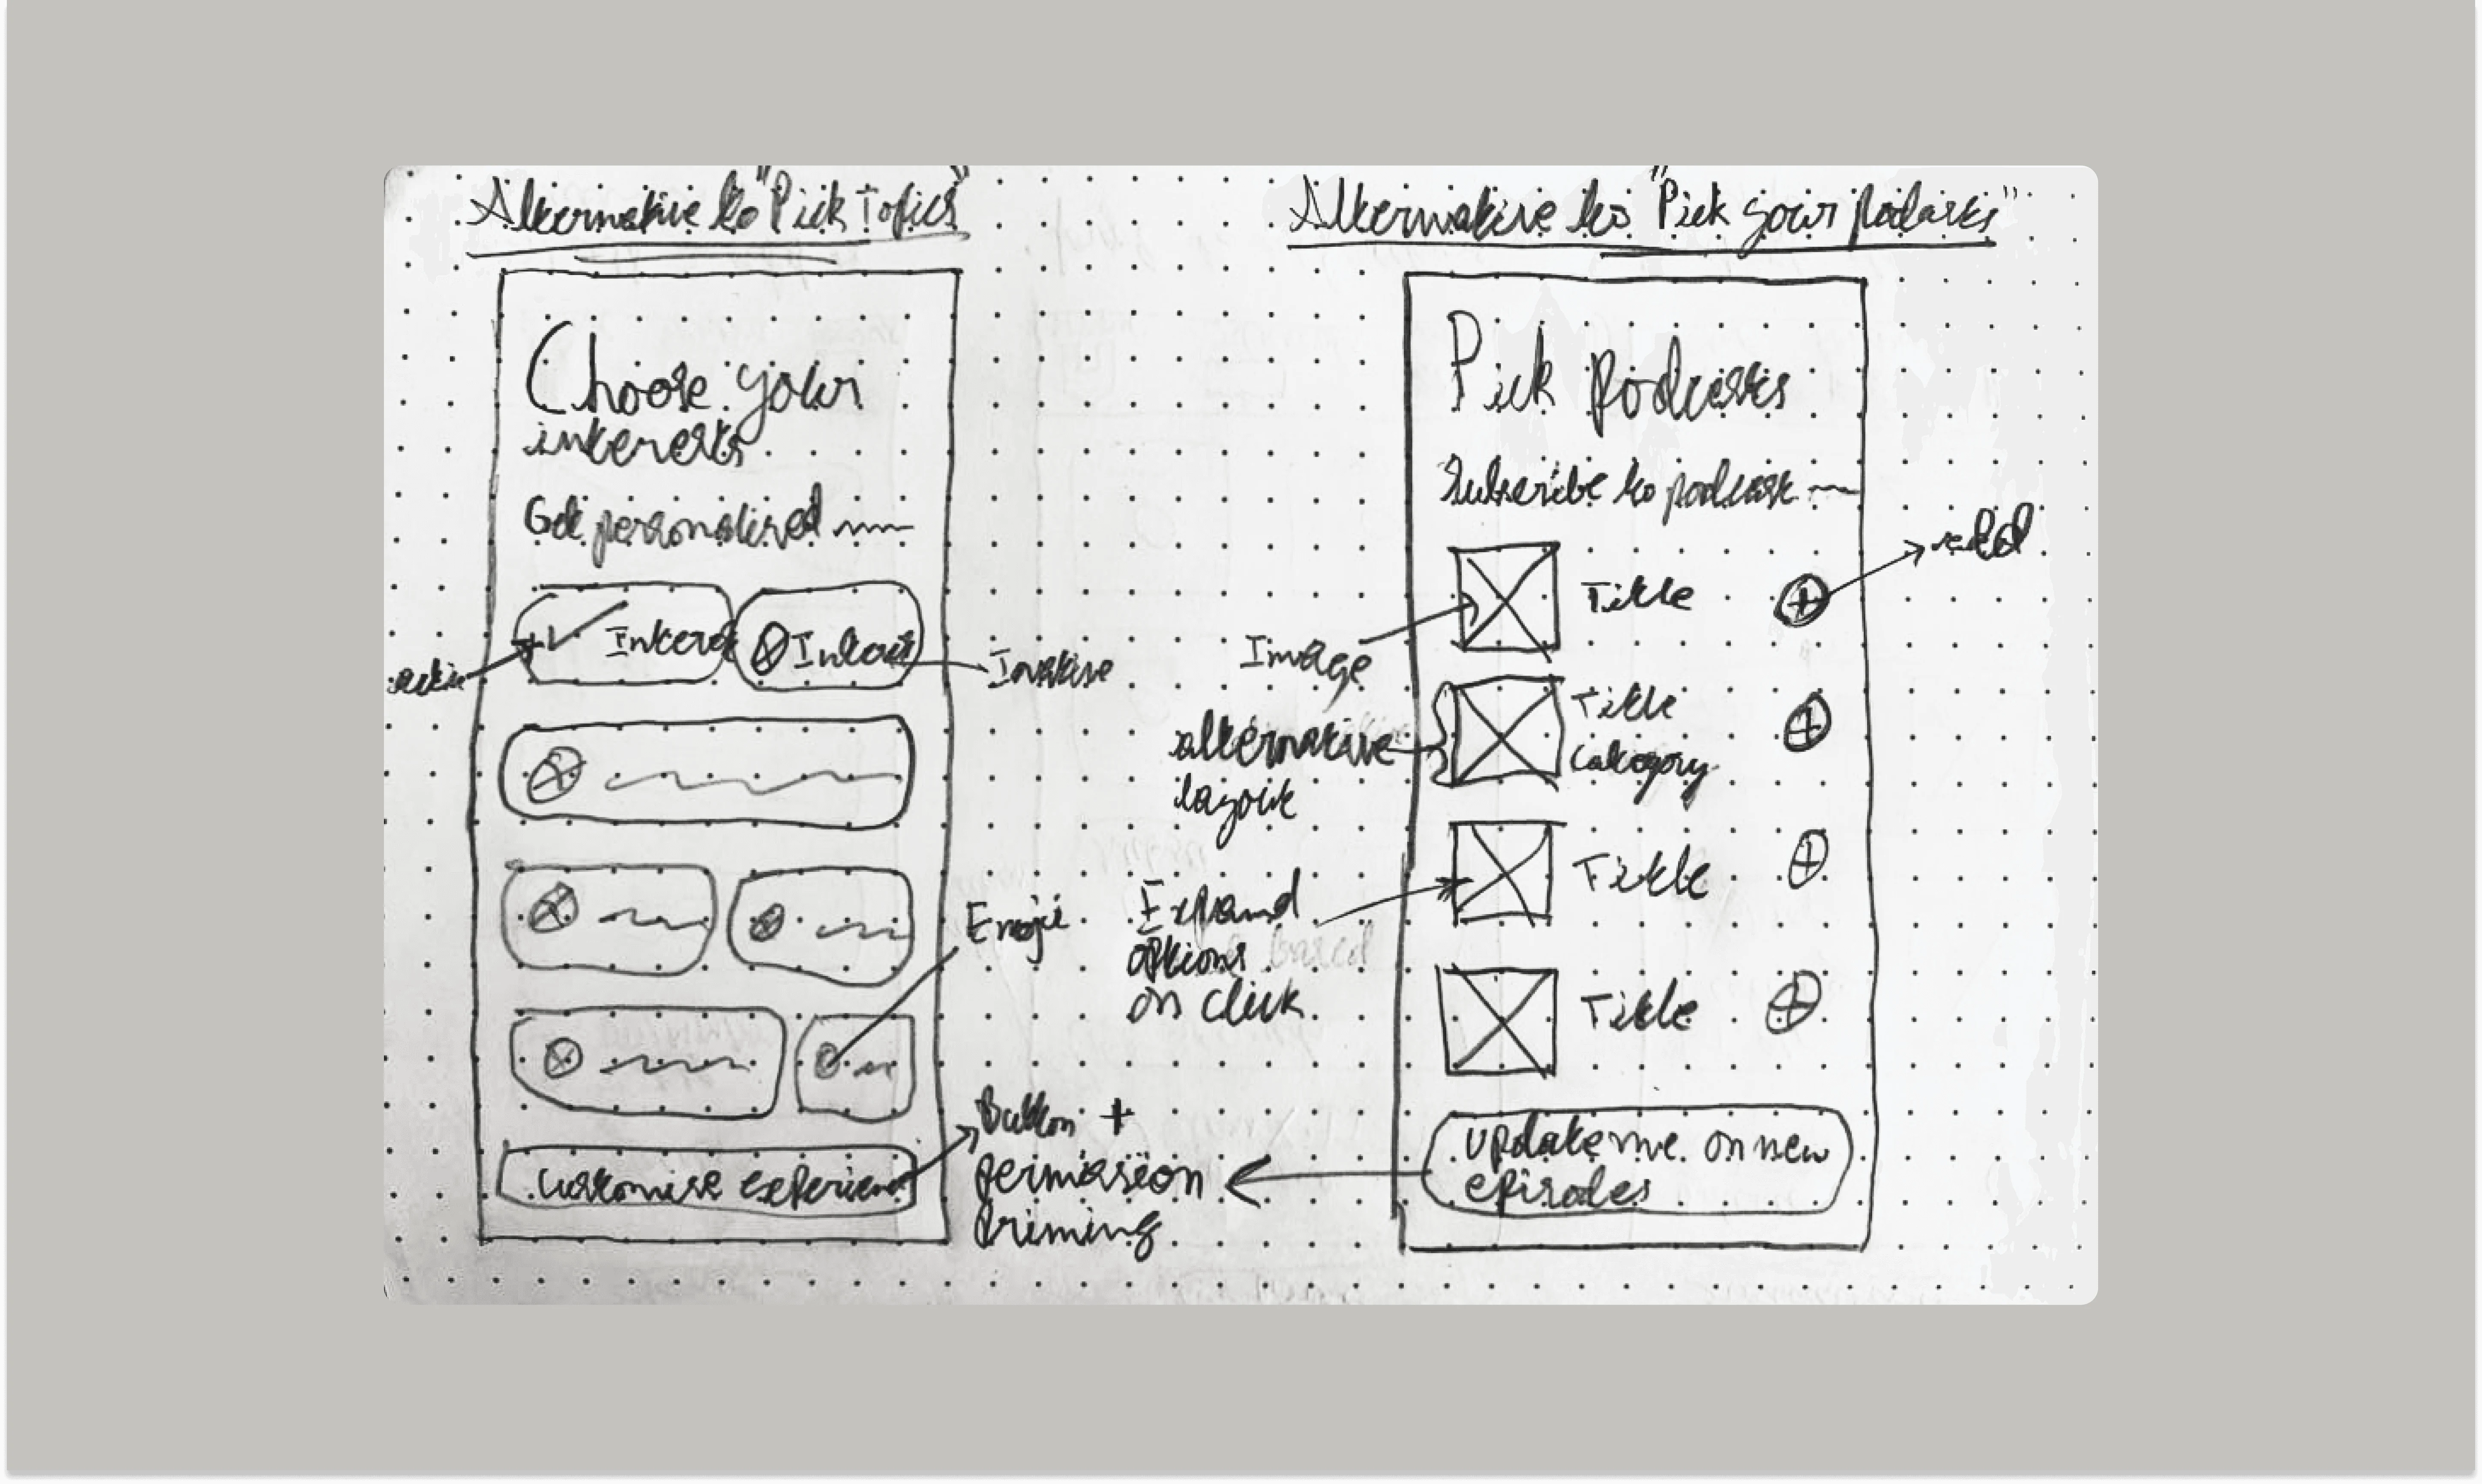 Alternative to "Pick Topics"
Choose your
interests
Get personalised
Interest
Interest
active
Inactive
Emoji
Customise experience
Button +
permission
priming
Alternative to "Pick your podcasts"
Pick podcasts
Subscribe to podcast
Title
add
Image
Title
Category
alternative
layout
Title
Expand
options based
on click
Title
Update me on new
episodes